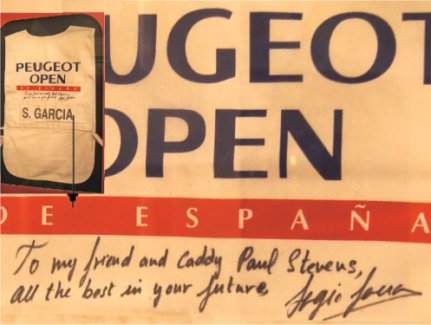 PEUGEOT
OPEN
DE ESPAÑA
S. GARCIA
UGEOT
OPEN
DE ESPAÑA
To my friend and Caddy Paul Stevens,
all the best in your future Sergio Garcia